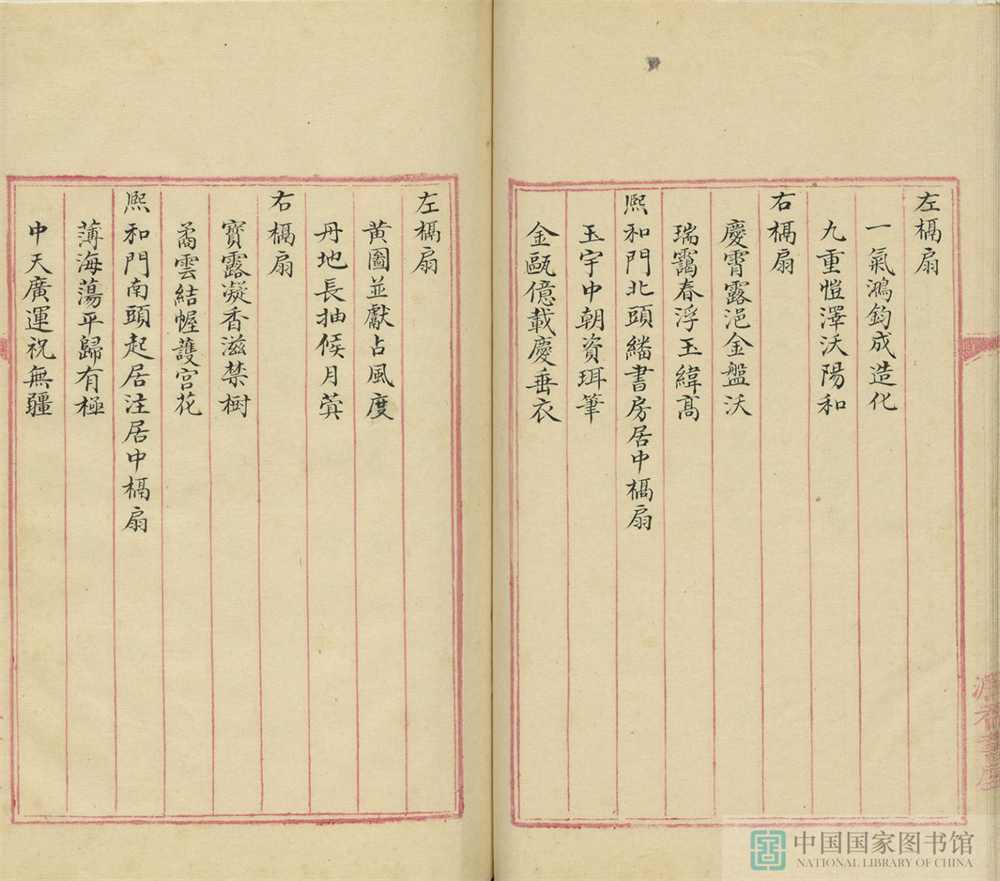 左槅扇
一氣鴻鈞成造化
九重愷澤沃陽和
右槅扇
慶霄露浥金盤沃
瑞靄春浮玉緯髙
熈和門北頭繙書房居中槅扇
玉宇中朝資珥筆
金甌億載慶垂衣
左槅扇
黄圖並獻占風度
丹地長抽候月蓂
右槅扇
寳露凝香滋禁樹
矞雲結幄護宫花
熈和門南頭起居注居中槅扇
薄海蕩平歸有極
中天廣運祝無疆
中国国家图书馆
NATIONAL LIBRARY OF CHINA